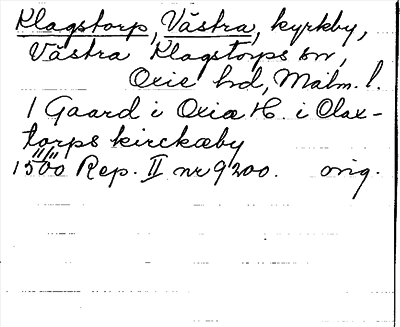 Klagstorp, Västra, kyrkby,
Västra Klagstorps sn,
Oxie hd, Malm. l.
1 Gaard i Oxiæ H. i Clax-
torps kirckæby
1500 11/11 Rep. II nr 9200. orig.